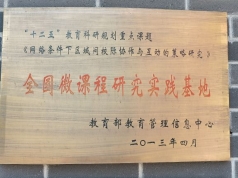 "十二五"教育科研规划重点课题
《网络条件下区域网校际协作与互动的策略研究》
全国微课程研究实践基地
教育部教育管理信息中心
二〇一三年四月